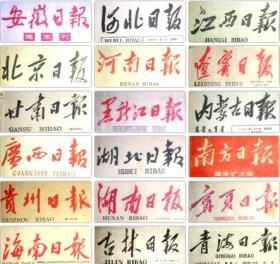 安徽日報
周末刊
河北日報
HEBEI RIBAO
江西日报
JIANGXI RIBAO
北京日报
河南日報
HENAN RIBAO
遼寧日報
LIAONING RIBAO
甘肃日報
GANSU RIBAO
黑龙江日報
内蒙古日報
廣西日報
GVANGJSIH YIZBAU
湖北日報
HUBEI RIBAO
南方日報
周末扩大版
貴州日報
GUIZHOU RIBAO
湖南日報
HUNAN RIBAO
寧夏日報
NINGXIA RIBAO
海南日报
HAINAN RIBAO
吉林日報
JILIN RIBAO
青海日報
QINGHAI RIBAO